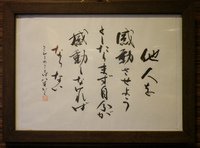 他人を
感動させよう
としたらまず自分が
感動しなければ
ならない